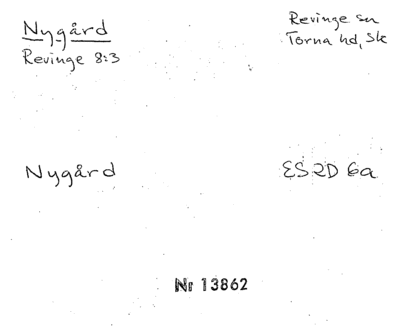 Nygård
Revinge 8:3
Revinge sn
Torna hd, Sk
Nygård
ES 2D 6a
Nr 13862